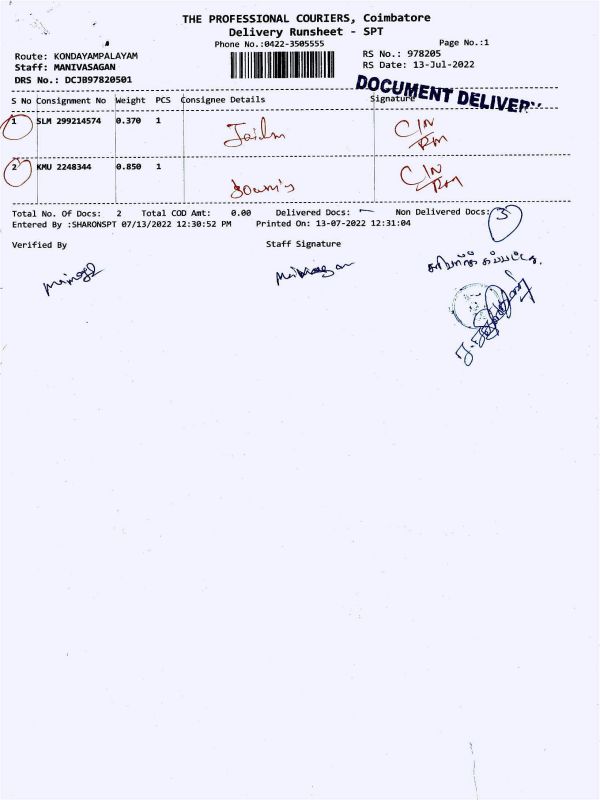 THE PROFESSIONAL COURIERS, Coimbatore
Delivery Runsheet - SPT
Phone No.:0422-3505555
Page No.:1
Route: KONDAYAMPALAYAM
RS No.: 978205
Staff: MANIVASAGAN
RS Date: 13-Jul-2022
DRS No.: DCJB97820501
DOCUMENT DELIVER
S No Consignment No Weight PCS Consignee Details Signature
1 SLM 299214574 0.370 1 C/N
RM
2 KMU 2248344 0.850 1 C/N
RM
Total No. Of Docs: 2 Total COD Amt: 0.00 Delivered Docs: Non Delivered Docs:
Entered By :SHARONSPT 07/13/2022 12:30:52 PM Printed On: 13-07-2022 12:31:04
Verified By Staff Signature